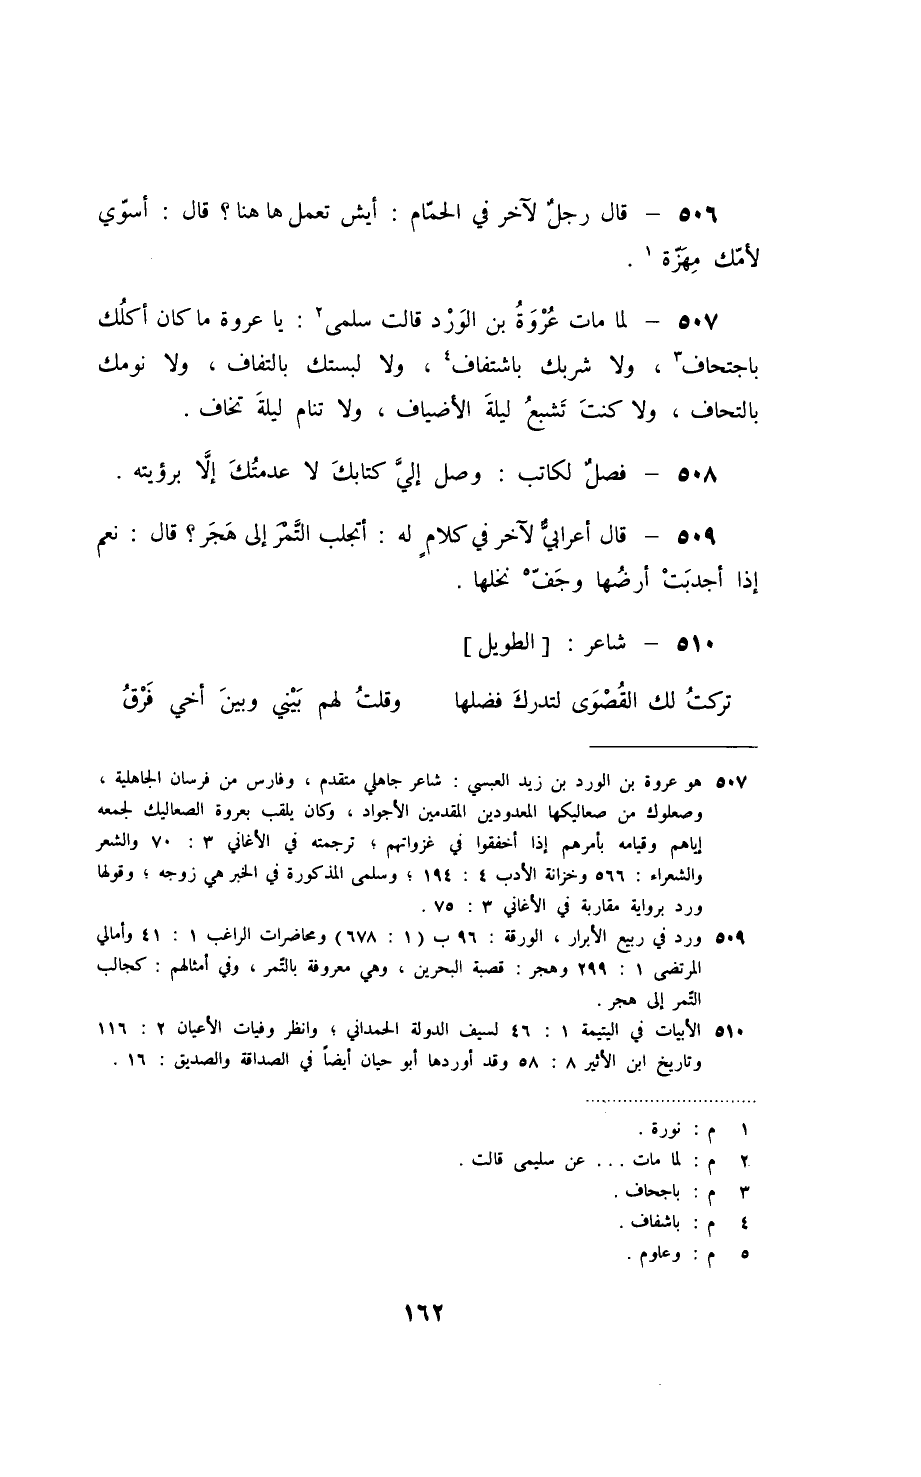 ٥٠٦ – قال رجلٌ لآخر في الحمّام : أيش تعمل ها هنا ؟ قال : أسوّي
لأمّك مِهَزّة ١ .
٥٠٧ – لما مات عُرْوَةُ بن الوَرْد قالت سلمى٢ : يا عروة ما كان أكلُك
باجتحاف٣ ، ولا شربك باشتفاف٤ ، ولا لبستك بالتفاف ، ولا نومك
بالتحاف ، ولا كنتَ تَشبعُ ليلةَ الأضياف ، ولا تنام ليلةَ تخاف .
٥٠٨ – فصلٌ لكاتب : وصل إليَّ كتابكَ لا عدمتُكَ إلَّا برؤيته .
٥٠٩ – قال أعرابيٌّ لآخر في كلامٍ له : أتجلب التَّمْرَ إلى هَجَر ؟ قال : نعم
إذا أجدبَتْ أرضُها وجَفّ٥ نخلها .
٥١٠ – شاعر : [ الطويل ]
تركتُ لك القُصْوَى لتدركَ فضلها وقلتُ لهم بَيْني وبينَ أخي فَرْقُ
٥٠٧ هو عروة بن الورد بن زيد العبسي : شاعر جاهلي متقدم ، وفارس من فرسان الجاهلية ،
وصعلوك من صعاليكها المعدودين المقدمين الأجواد ، وكان يلقب بعروة الصعاليك لجمعه
إياهم وقيامه بأمرهم إذا أخفقوا في غزواتهم ؛ ترجمته في الأغاني ٣ : ٧٠ والشعر
والشعراء : ٥٦٦ وخزانة الأدب ٤ : ١٩٤ ؛ وسلمى المذكورة في الخبر هي زوجه ؛ وقولها
ورد برواية مقاربة في الأغاني ٣ : ٧٥ .
٥٠٩ ورد في ربيع الأبرار ، الورقة : ٩٦ ب ( ١ : ٦٧٨ ) ومحاضرات الراغب ١ : ٤١ وأمالي
المرتضى ١ : ٢٩٩ وهجر : قصبة البحرين ، وهي معروفة بالتّمر ، وفي أمثالهم : كجالب
التّمر إلى هجر .
٥١٠ الأبيات في اليتيمة ١ : ٤٦ لسيف الدولة الحمداني ؛ وانظر وفيات الأعيان ٢ : ١١٦
وتاريخ ابن الأثير ٨ : ٥٨ وقد أوردها أبو حيان أيضاً في الصداقة والصديق : ١٦ .
١ م : نورة .
٢ م : لما مات ... عن سليمى قالت .
٣ م : باجحاف .
٤ م : باشفاف .
٥ م : وعاوم .
١٦٢